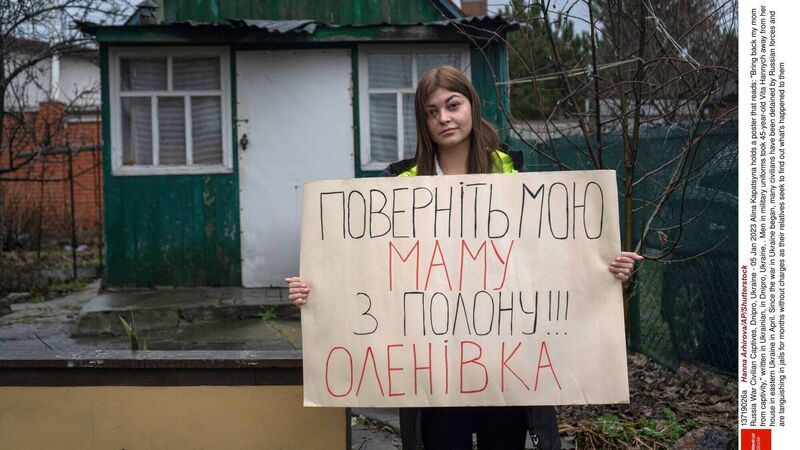 ПОВЕРНІТЬ МОЮ
МАМУ
З ПОЛОНУ!!!
ОЛЕНІВКА
13719026a Hanna Arhirova/AP/Shutterstock
Russia War Civilian Captives, Dnipro, Ukraine - 05 Jan 2023 Alina Kapatsyna holds a poster that reads: "Bring back my mom
from captivity," written in Ukrainian, in Dnipro, Ukraine, . Men in military uniforms took 45-year-old Vita Hannych away from her
house in eastern Ukraine in April. Since the war in Ukraine began, many civilians have been detained by Russian forces and
are languishing in jails for months without charges as their relatives seek to find out what's happened to them